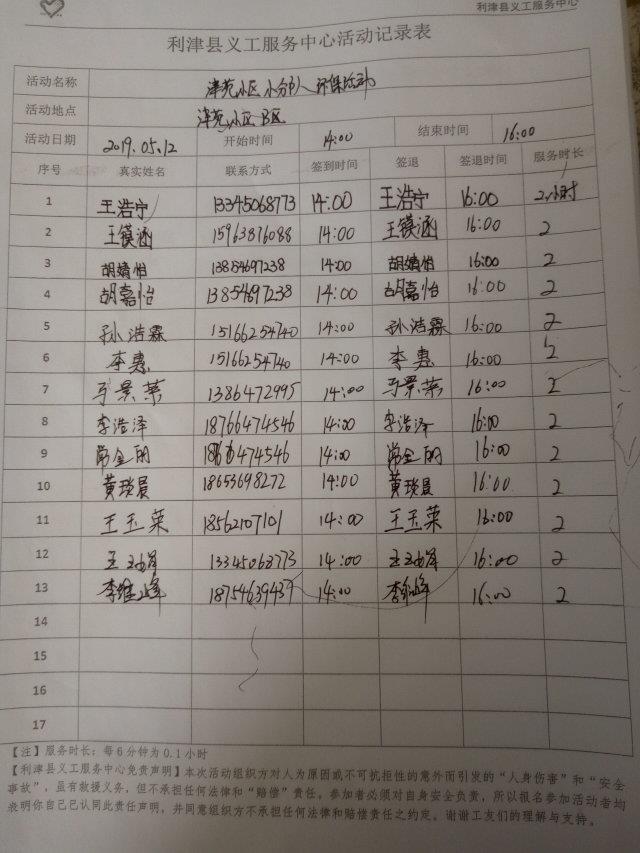 利津县义工服务中心
利津县义工服务中心活动记录表
活动名称 津苑小区小分队环保活动
活动地点 津苑小区B区
活动日期 2019.05.12 开始时间 14:00 结束时间 16:00
序号 真实姓名 联系方式 签到时间 签退 签退时间 服务时长
1 王浩宁 13345068773 14:00 王浩宁 16:00 2小时
2 王镁涵 15963876088 14:00 王镁涵 16:00 2
3 胡婧怡 13854697238 14:00 胡婧怡 16:00 2
4 胡嘉怡 13854697238 14:00 胡嘉怡 16:00 2
5 孙浩霖 15166254740 14:00 孙浩霖 16:00 2
6 李惠 15166254740 14:00 李惠 16:00 2
7 景荣 1386472995 14:00 景荣 16:00 2
8 李浩泽 18766474546 14:00 李浩泽 16:00 2
9 常金明 14:00 常金明 16:00 2
10 黄琰晨 18653698272 14:00 黄琰晨 16:00 2
11 王玉菜 18562107101 14:00 王玉菜 16:00 2
12 13345068773 14:00 16:00 2
13 李维峰 18754639437 14:00 李维峰 16:00 2
14
15
16
17
【注】服务时长：每6分钟为0.1小时
【利津县义工服务中心免责声明】本次活动组织方对人为原因或不可抗拒性的意外而引发的“人身伤害”和“安全
事故”，虽有救援义务，但不承担任何法律和“赔偿”责任。参加者必须对自身安全负责，所以报名参加活动者均
表明你自己已认同此责任声明，并同意组织方不承担任何法律和赔偿责任之约定。谢谢工友们的理解与支持。